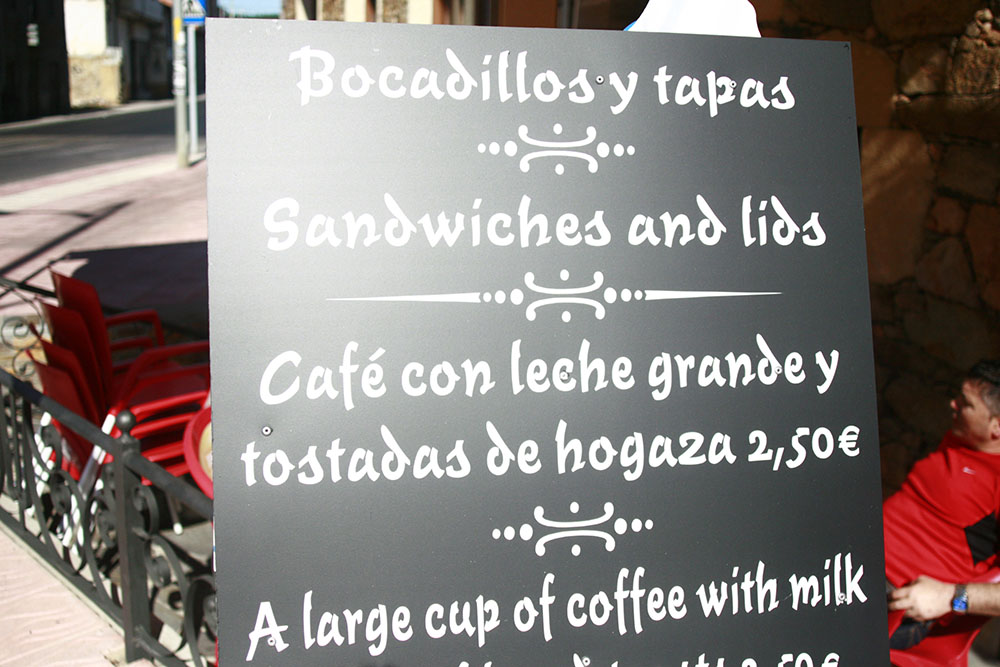 Bocadillos y tapas
Sandwiches and lids
Café con leche grande y
tostadas de hogaza 2,50€
A large cup of coffee with milk
2,50€